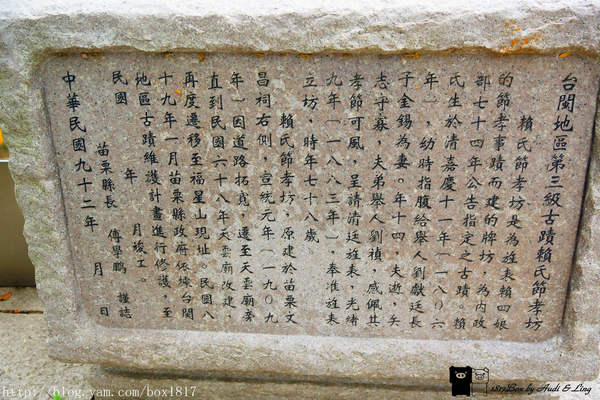 台閩地區第三級古蹟賴氏節孝坊
賴氏節孝坊是為旌表賴四娘
的節孝事蹟而建的牌坊，為內政
部七十四年公告指定之古蹟。賴
氏生於清嘉慶十一年（一八〇六
年），幼時指腹給舉人劉獻廷長
子金錫為妻。年十四，夫逝，矢
志守寡，夫弟舉人劉禎，感佩其
孝節可風，呈請清廷旌表，光緒
九年（一八八三年），奉准旌表
立坊，時年七十八歲。
賴氏節孝坊，原建於苗栗文
昌祠右側，宣統元年（一九〇九
年）因道路拓寬，遷至天雲廟旁
直到民國六十八年天雲廟改建，
再度遷移至福星山現址。民國八
十九年一月苗栗縣政府依據台閩
地區古蹟維護計畫進行修護，至
民國 年 月竣工。
苗栗縣長 傅學鵬 謹誌
中華民國九十二年 月 日
1817Box by Audi & Ling
http://blog.yam.com/box1817